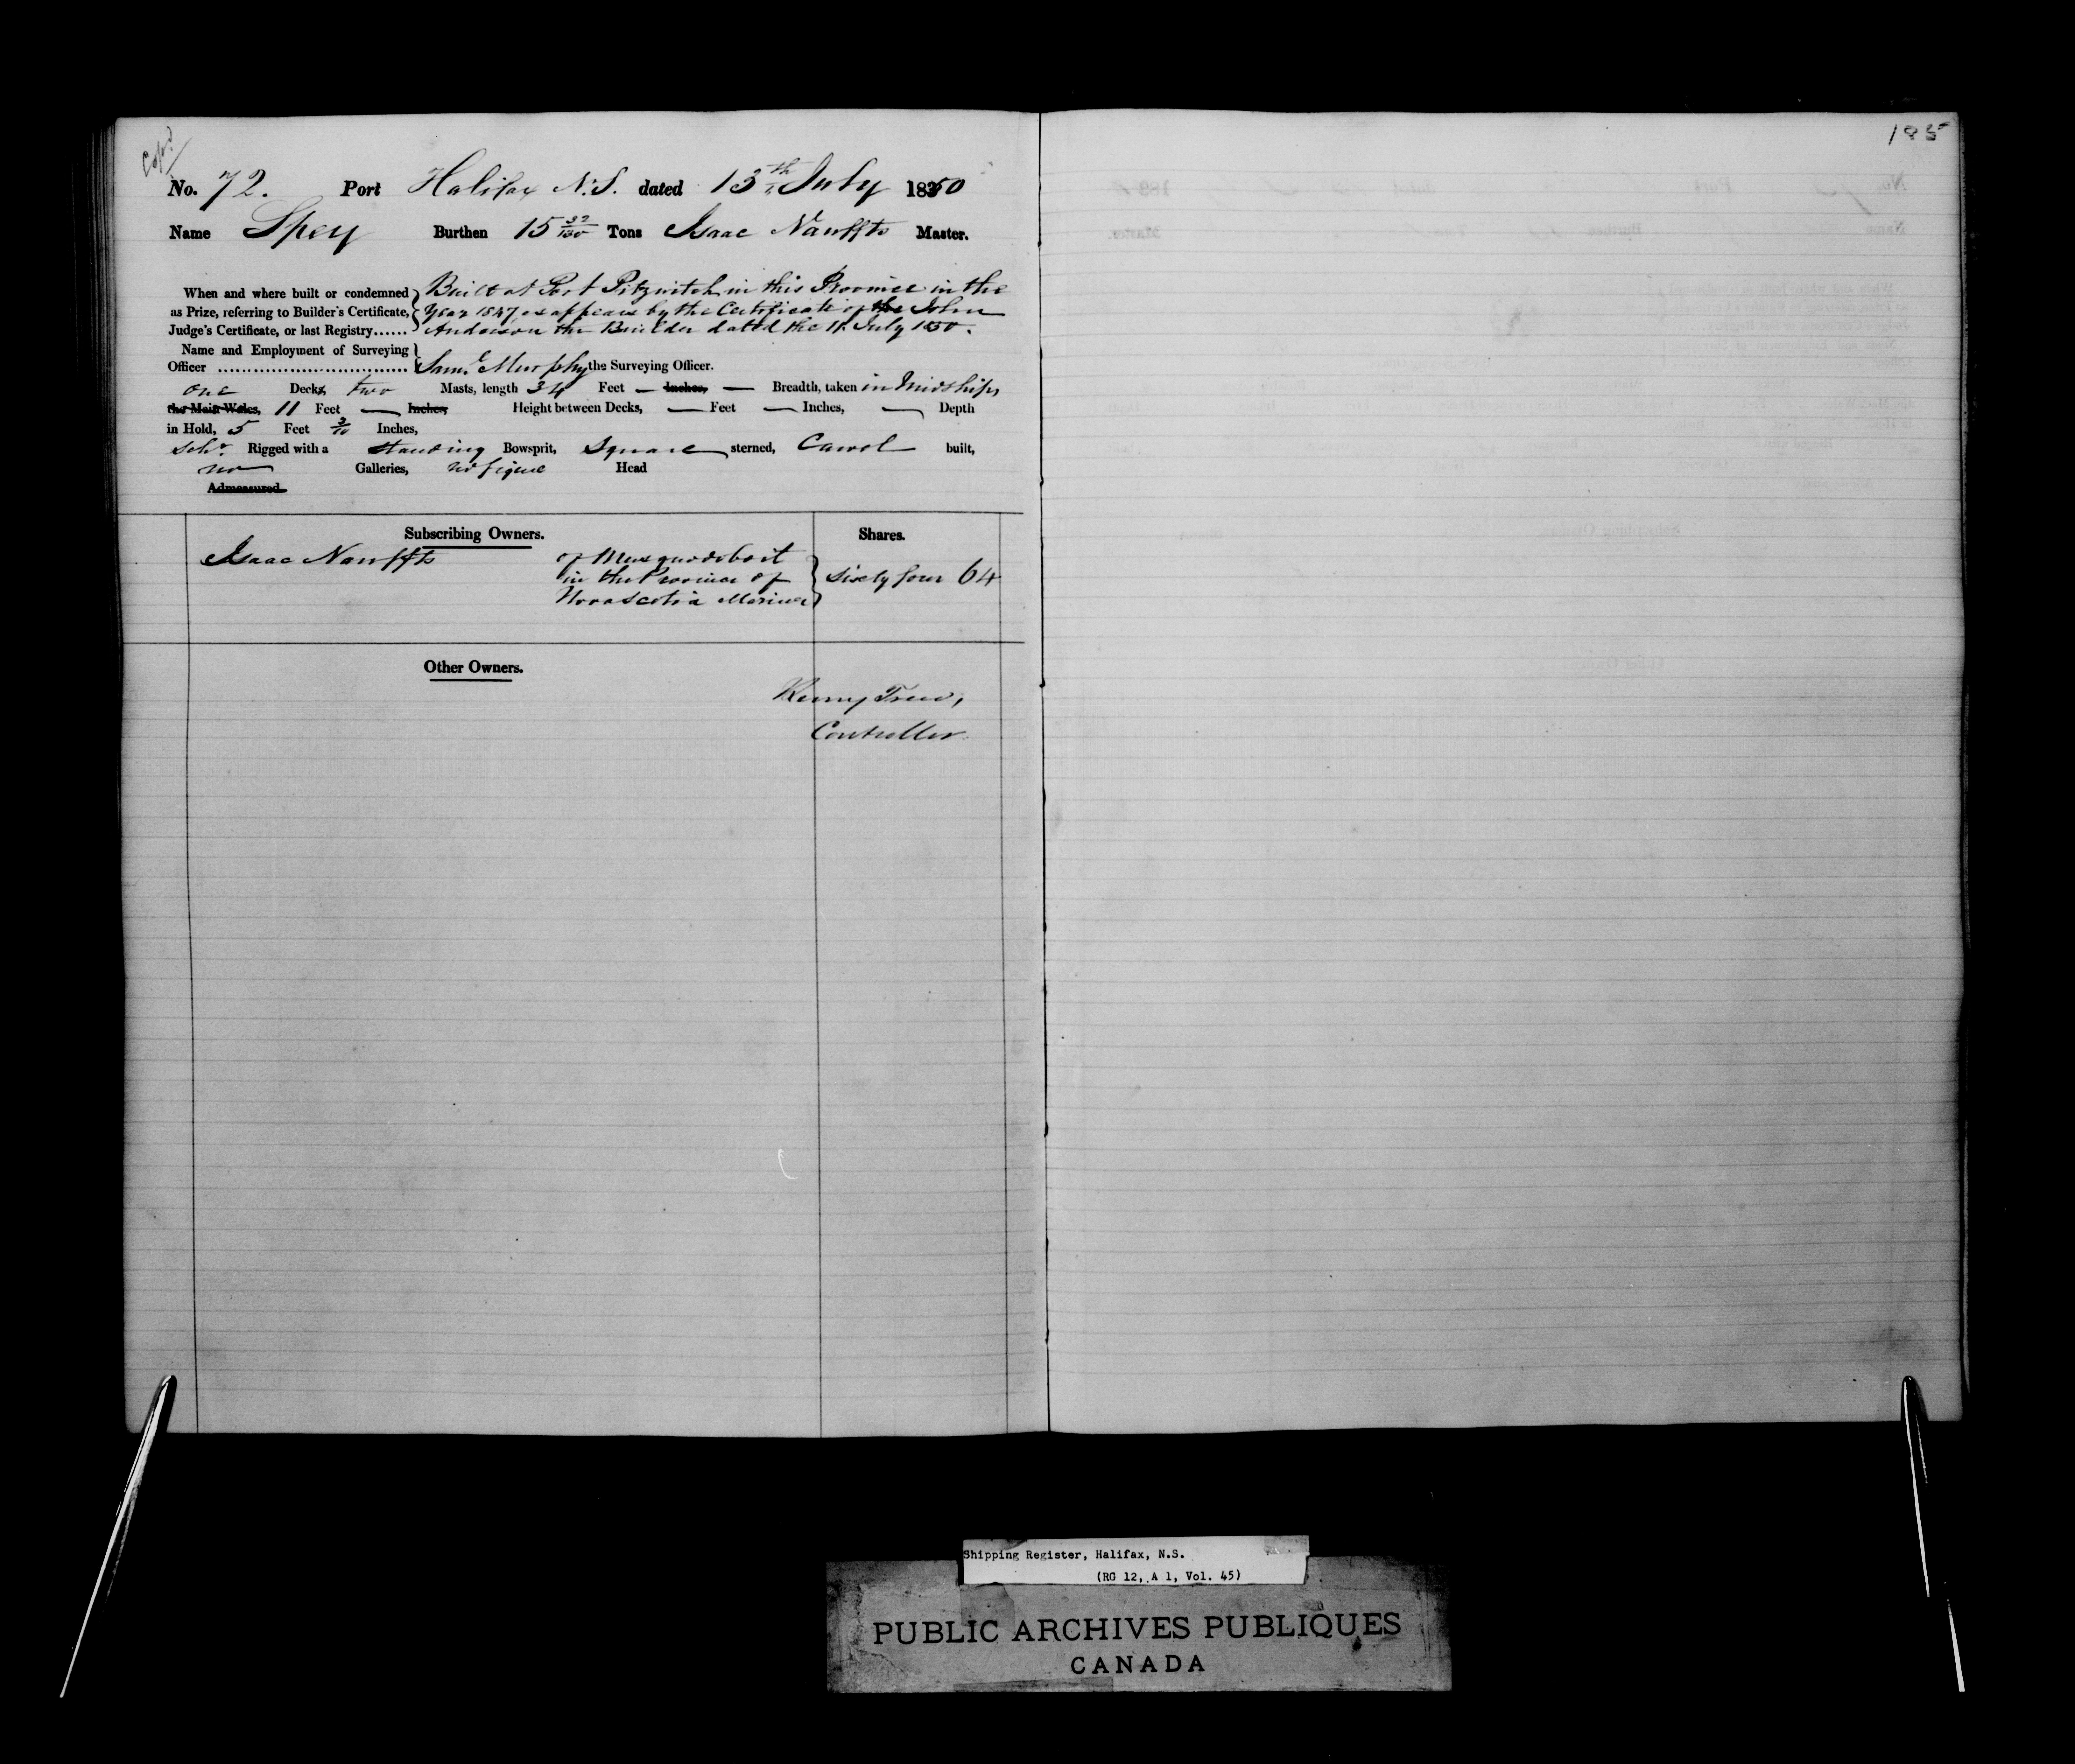 185
Cop?d
No. 72. Port Halifax N.S. dated 13th July 1850
Name Spey Burthen 15 32/100 Tons Isaac Nauffts Master.
When and where built or condemned as Prize, referring to Builder's Certificate, Judge's Certificate, or last Registry......
Built at Port in this Province in the
Year 1847, as appears by the Certificate of the John
Anderson the Builder dated the 11 July 1850.
Name and Employment of Surveying
Officer .............................. Saml Murphy the Surveying Officer.
one Decks two Masts, length 34 Feet — Inches, — Breadth, taken in Midships
the Main Wales, 11 Feet — Inches Height between Decks, — Feet — Inches, — Depth
in Hold, 5 Feet 3/10 Inches,
Schr. Rigged with a standing Bowsprit, Square sterned, Carvel built,
no Galleries, no figure Head
Admeasured
Subscribing Owners. Shares.
Isaac Nauffts of Musquodoboit
in the Province of sixty four 64
Nova Scotia Mariner
Other Owners.
Controller
Shipping Register, Halifax, N.S.
(RG 12, A 1, Vol. 45)
PUBLIC ARCHIVES PUBLIQUES
CANADA